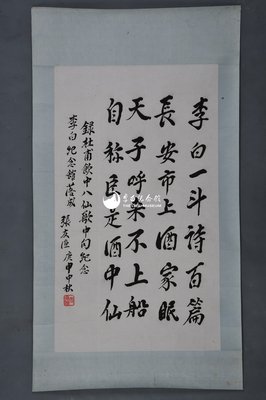 李白一斗詩百篇
長安市上酒家眠
天子呼来不上船
自称臣是酒中仙
録杜甫飲中八仙歌中句紀念
李白紀念館落成 張友漁 庚申中秋